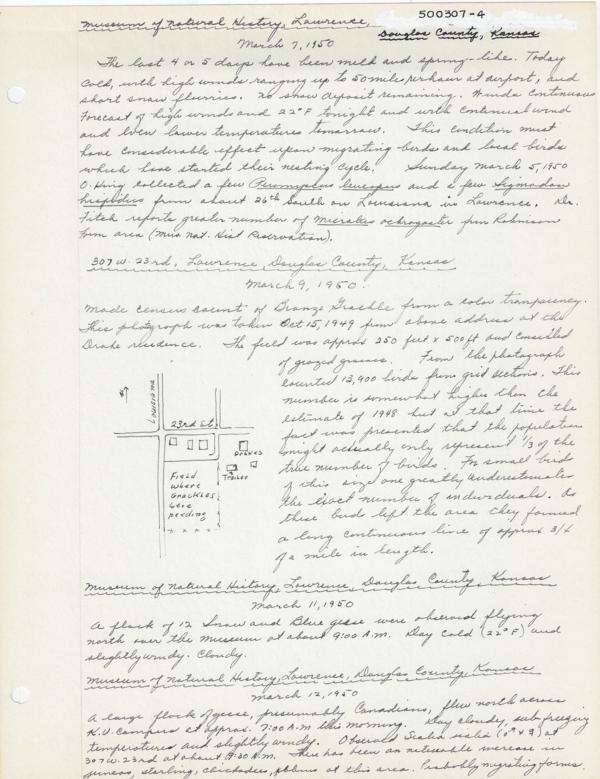 500307-4
Museum of Natural History, Lawrence,
Douglas County, Kansas
March 7, 1950
The last 4 or 5 days have been mild and spring-like. Today
Cold, with high winds ranging up to 50 mile per hour at airport, and
short snow flurries. No snow deposit remaining. Winds continuous
Forecast of high winds and 22°F tonight and with continual wind
and even lower temperatures tomorrow. This condition must
have considerable effect upon migrating birds and local birds
which have started their nesting cycle. Sunday March 5, 1950
O. King collected a few Peromyscus leucopus and a few Sigmodon
hispidus from about 26th South on Louisiana in Lawrence. Dr.
Fitch reports greater number of Microtus ochrogaster from Robinson
farm area (Mus. Nat. Hist Reservation).
307 W. 23rd, Lawrence, Douglas County, Kansas
March 9, 1950.
Made census count of Bronze Grackle from a color transparency.
This photograph was taken Oct 15, 1949 from above address at the
Drake residence. The field was approx 250 feet x 500 ft and consisted
of grazed grasses. From the photograph
counted 13,900 birds from grid sections. This
number is somewhat higher than the
estimate of 1948 but at that time the
fact was presented that the population
might actually only represent 1/3 of the
true number of birds. For small birds
of this size one greatly underestimates
the exact number of individuals. As
these bird left the area they formed
a long continuous line of approx 3/4
of a mile in length.
N
Louisiana
23rd St.
Drakes
Trailer
Field
where
Grackles
were
feeding
Museum of Natural History, Lawrence, Douglas County, Kansas
March 11, 1950
A flock of 12 Snow and Blue geese were observed flying
north over the Museum at about 9:00 A.M. Day Cold (22°F) and
slightly windy. Cloudy.
Museum of Natural History, Lawrence, Douglas County, Kansas
March 12, 1950
A large flock of geese, presumably Canadians, flew north across
K.U. Campus at approx. 7:00 A.M. this morning. Day cloudy, sub freezing
temperatures and slightly windy. Observed Sialia sialis (♂ & ♀) at
307 W. 23rd at about 9:30 A.M. There has been an noticeable increase in
juncos, starling, chickadees, robins at this area. Probably migrating forms.